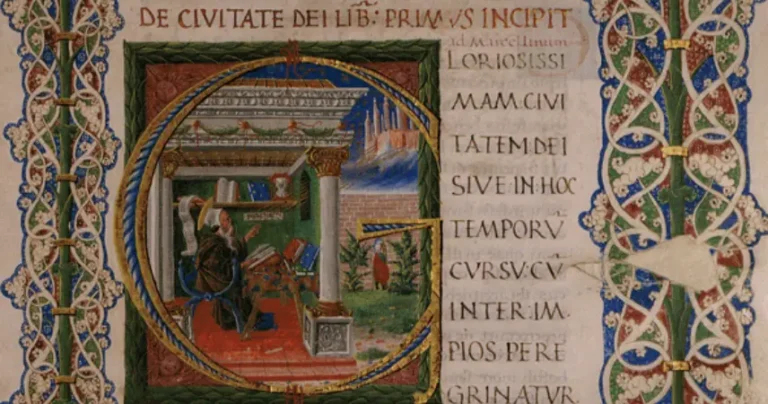 DE CIVITATE DEI LIB̅: PRIMVS INCIPIT
ad Marcellinum
GLORIOSISSI
MAM CIVI
TATEM DEI
SIVE IN HOC
TEMPORV̅
CVRSV: CV̅
INTER IM
PIOS PERE
GRINATVR